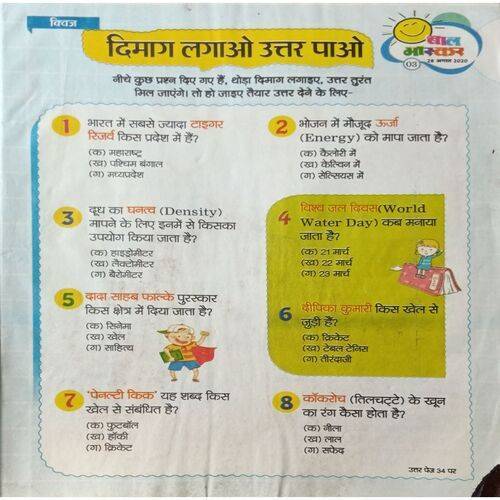 क्विज
दिमाग लगाओ उत्तर पाओ
बाल
भास्कर
03
28 अगस्त 2020
नीचे कुछ प्रश्न दिए गए हैं, थोड़ा दिमाग लगाइए, उत्तर तुरंत
मिल जाएंगे। तो हो जाइए तैयार उत्तर देने के लिए-
1 भारत में सबसे ज्यादा टाइगर
रिजर्व किस प्रदेश में हैं?
(क) महाराष्ट्र
(ख) पश्चिम बंगाल
(ग) मध्यप्रदेश
2 भोजन में मौजूद ऊर्जा
(Energy) को मापा जाता है?
(क) कैलोरी में
(ख) केल्विन में
(ग) सेल्सियस में
3 दूध का घनत्व (Density)
मापने के लिए इनमें से किसका
उपयोग किया जाता है?
(क) हाइड्रोमीटर
(ख) लैक्टोमीटर
(ग) बैरोमीटर
4 विश्व जल दिवस(World
Water Day) कब मनाया
जाता है?
(क) 21 मार्च
(ख) 22 मार्च
(ग) 23 मार्च
5 दादा साहब फाल्के पुरस्कार
किस क्षेत्र में दिया जाता है?
(क) सिनेमा
(ख) खेल
(ग) साहित्य
6 दीपिका कुमारी किस खेल से
जुड़ी हैं?
(क) क्रिकेट
(ख) टेबल टेनिस
(ग) तीरंदाजी
7 'पेनल्टी किक' यह शब्द किस
खेल से संबंधित है?
(क) फुटबॉल
(ख) हॉकी
(ग) क्रिकेट
8 कॉकरोच (तिलचट्टे) के खून
का रंग कैसा होता है?
(क) नीला
(ख) लाल
(ग) सफेद
उत्तर पेज 34 पर